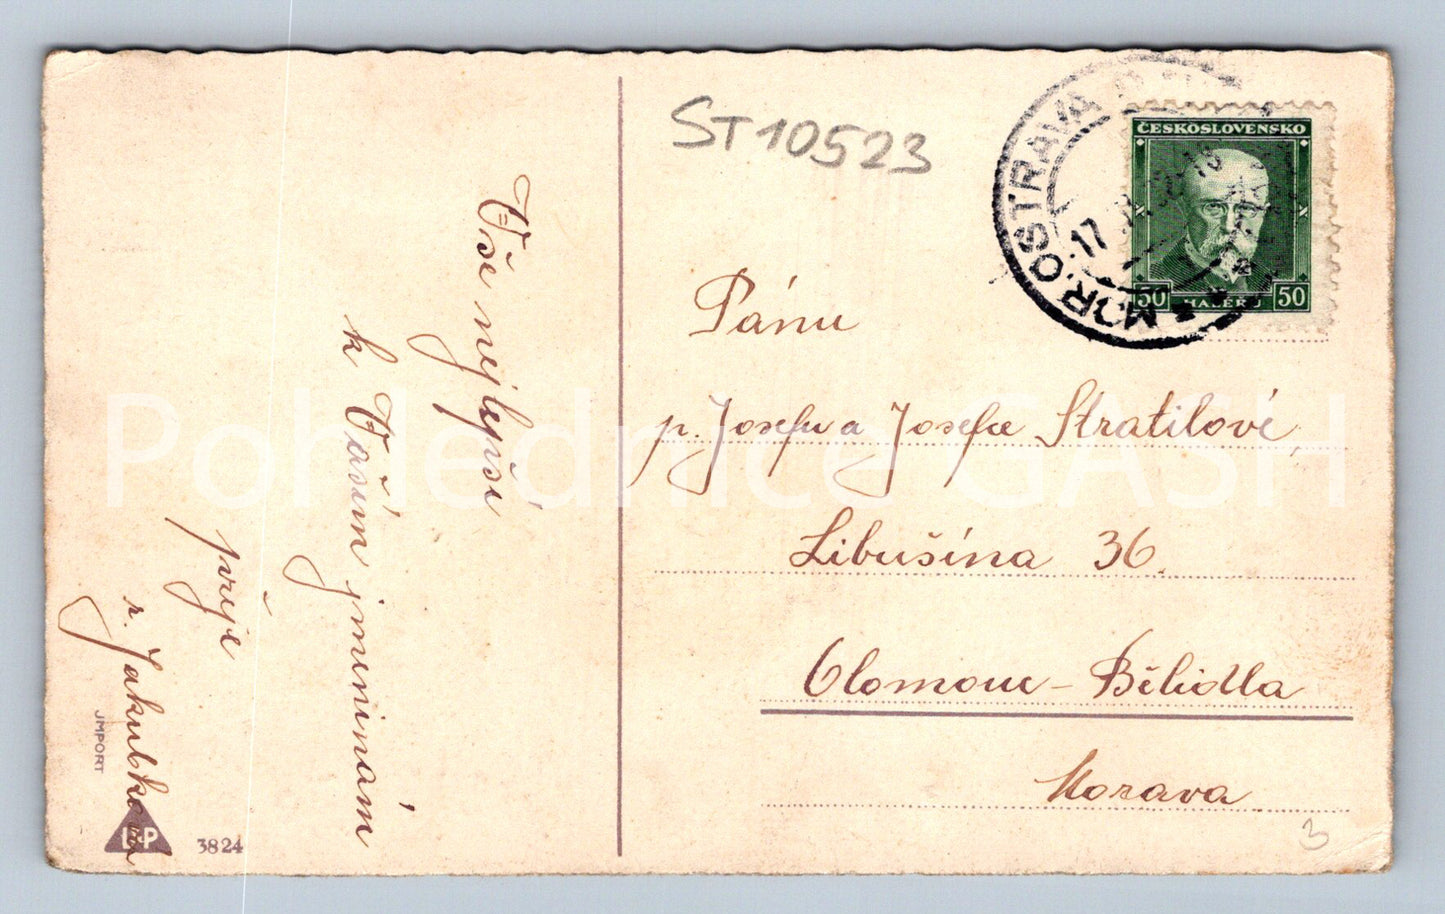 Vše nejlepší
k Vašim jmeninám
přeje
r. Jakubkova
JMPORT
3824
ST10523
MOR. OSTRAVA
17
ČESKOSLOVENSKO
50 HALÉŘŮ 50
Pánu
p. Josefu a Josefce Stratilové,
Libušína 36.
Olomouc - Bělidla
Morava
3
Pohlednice GASH